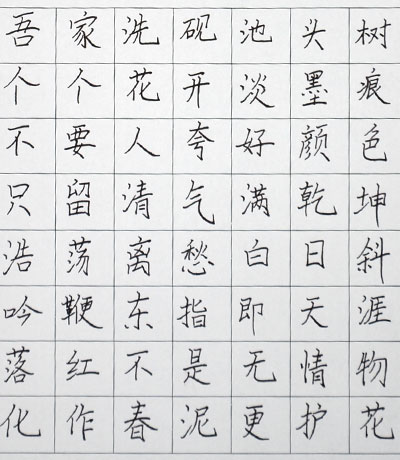 吾家洗砚池头树
个个花开淡墨痕
不要人夸好颜色
只留清气满乾坤
浩荡离愁白日斜
吟鞭东指即天涯
落红不是无情物
化作春泥更护花